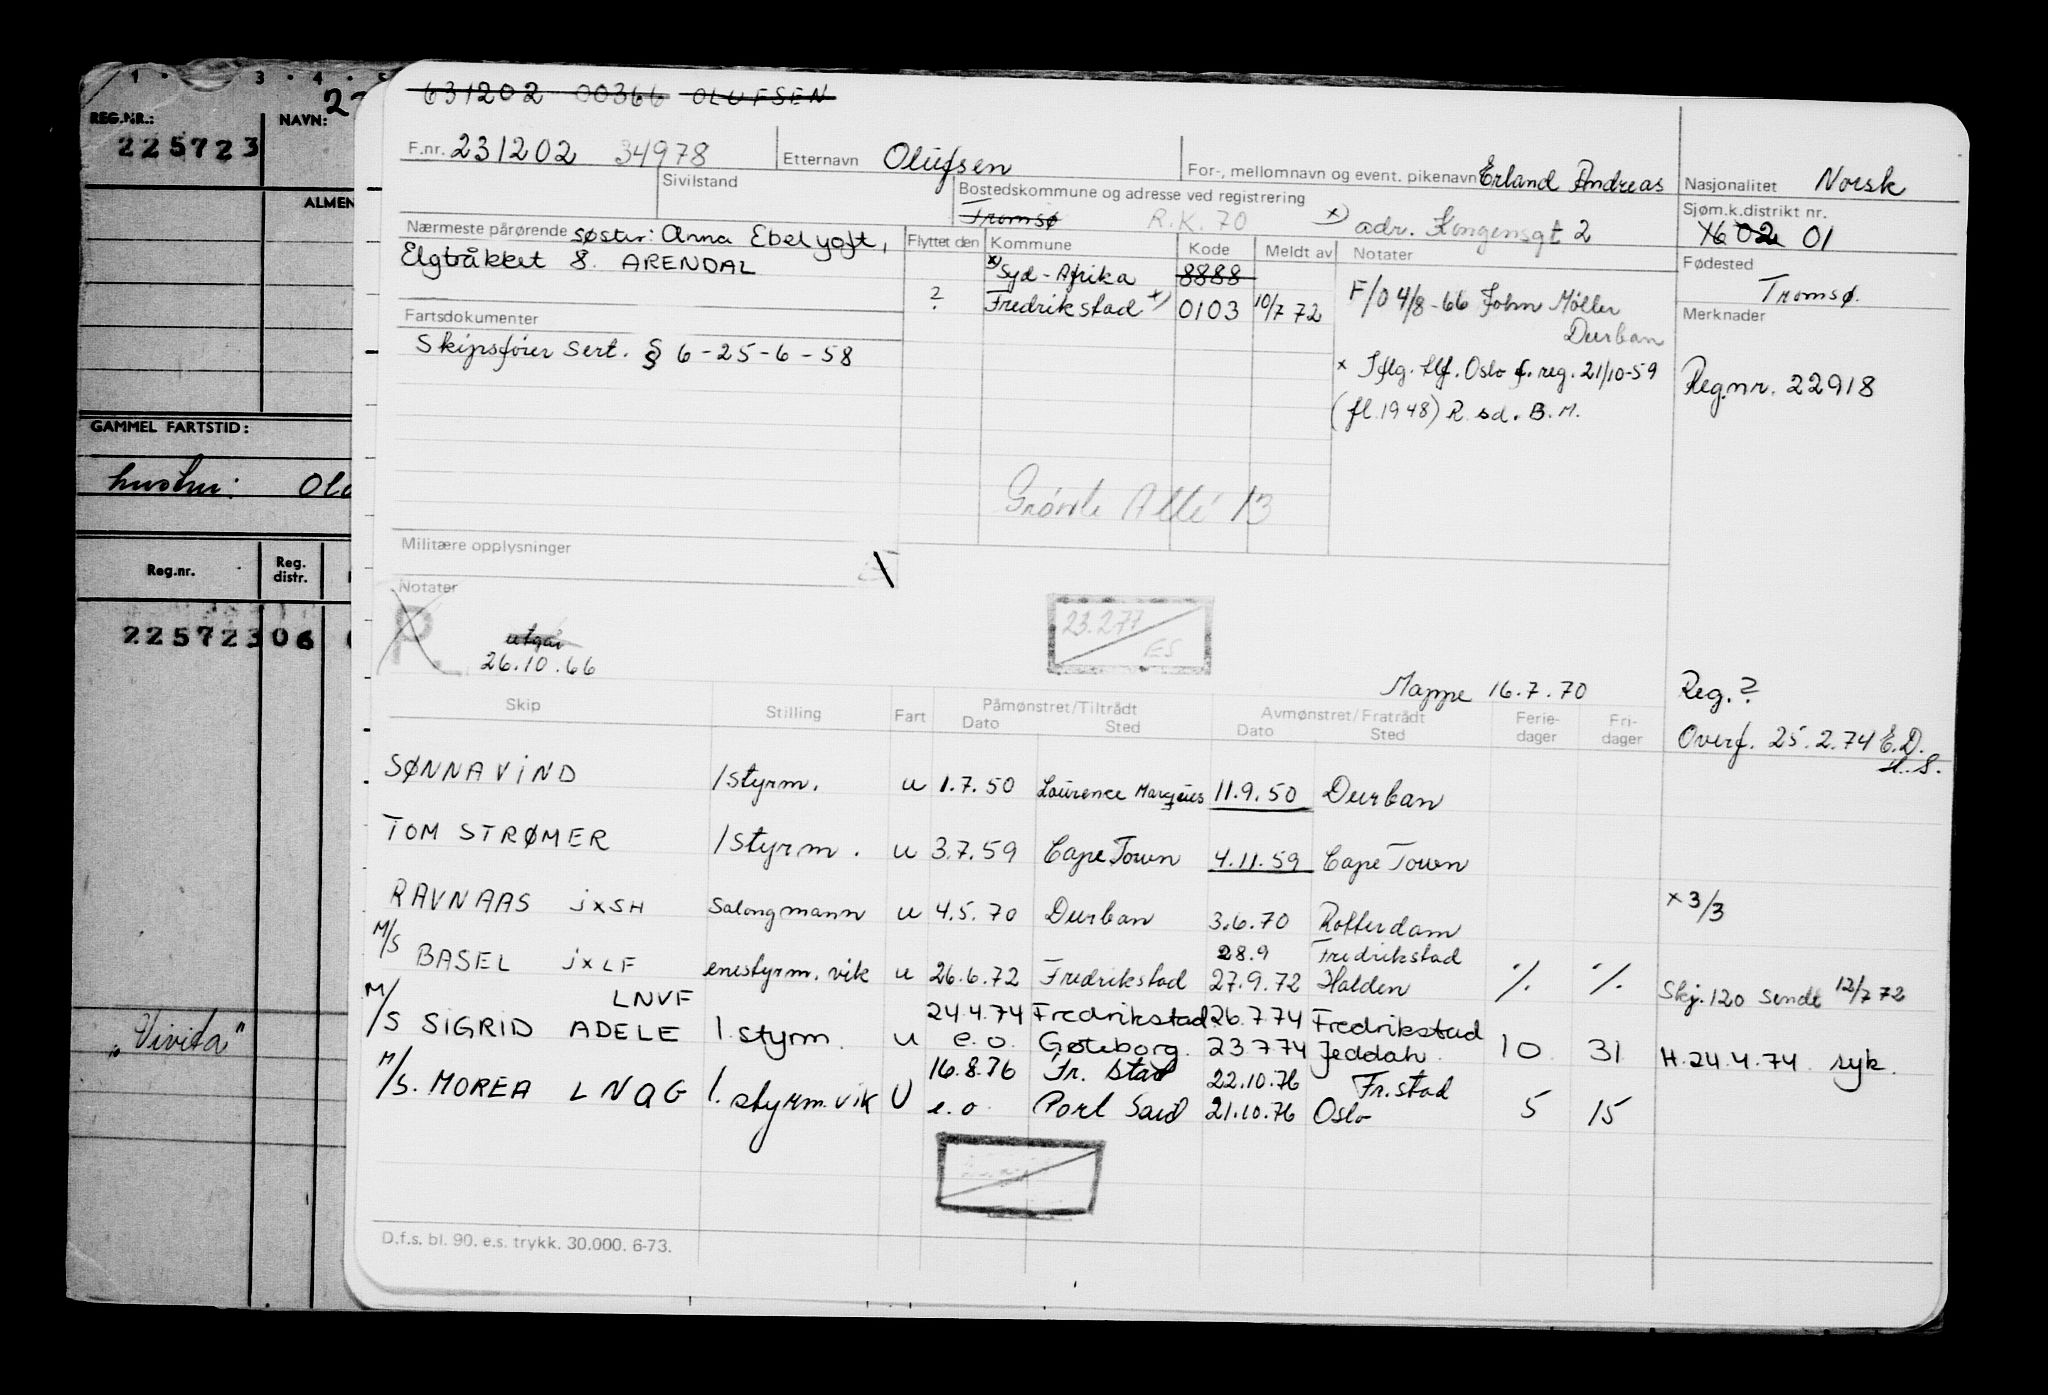 1 · 3 · 4 · 5
REG.NR.:
NAVN:
225723
ALMEN
GAMMEL FARTSTID:
Reg.nr.
Reg. distr.
22572306
"Vivita"
631202 00366 OLUFSEN
F.nr. 231202 34978 Etternavn Olufsen For-, mellomnavn og event. pikenavn Erland Andreas Nasjonalitet Norsk
Sivilstand Bostedskommune og adresse ved registrering Sjøm.k.distrikt nr.
Tromsø R.K. 70 x) adr. Kongensgt 2 02 01
Nærmeste pårørende søster: Anna Ebeltoft, Flyttet den Kommune Kode Meldt av Notater Fødested
Elgtråkket 8. ARENDAL x) Syd-Afrika 8888 Tromsø.
? Fredrikstad x) 0103 10/7 72 F/O 4/8-66 John Møller
Durban
Fartsdokumenter Merknader
Skipsfører Sert. § 6-25-6-58
x Iflg. tlf. Oslo f. reg. 21/10-59
(fl. 1948) R. sd. B.M.
Reg.nr. 22918
Allé 13
Militære opplysninger
Notater
R
utgår
26.10.66
23.2.77
ES
Mappe 16.7.70
Reg.?
Overf. 25.2.74 E.D.
Skip Stilling Fart Påmønstret/Tiltrådt Avmønstret/Fratrådt Ferie-dager Fri-dager
Dato Sted Dato Sted
SØNNAVIND 1 styrm. u 1.7.50 Laurence Marques 11.9.50 Durban
TOM STRØMER 1 styrm. u 3.7.59 Cape Town 4.11.59 Cape Town
RAVNAAS JXSH Salongmann u 4.5.70 Durban 3.6.70 Rotterdam x 3/3
28.9 Fredrikstad
M/S BASEL JXLF enestyrm. vik u 26.6.72 Fredrikstad 27.9.72 Halden % % Skj. 120 sendt 12/7 72
LNVF 24.4.74 Fredrikstad 26.7.74 Fredrikstad
M/S SIGRID ADELE 1. styrm. u e.o. Gøteborg. 23.7.74 Jeddah. 10 31 H. 24.4.74 syk.
16.8.76 Fr. stad 22.10.76 Fr.stad
M/S. MOREA LNQG 1. styrm. vik U e.o. Port Said 21.10.76 Oslo 5 15
D.f.s. bl. 90. e.s. trykk. 30.000. 6-73.